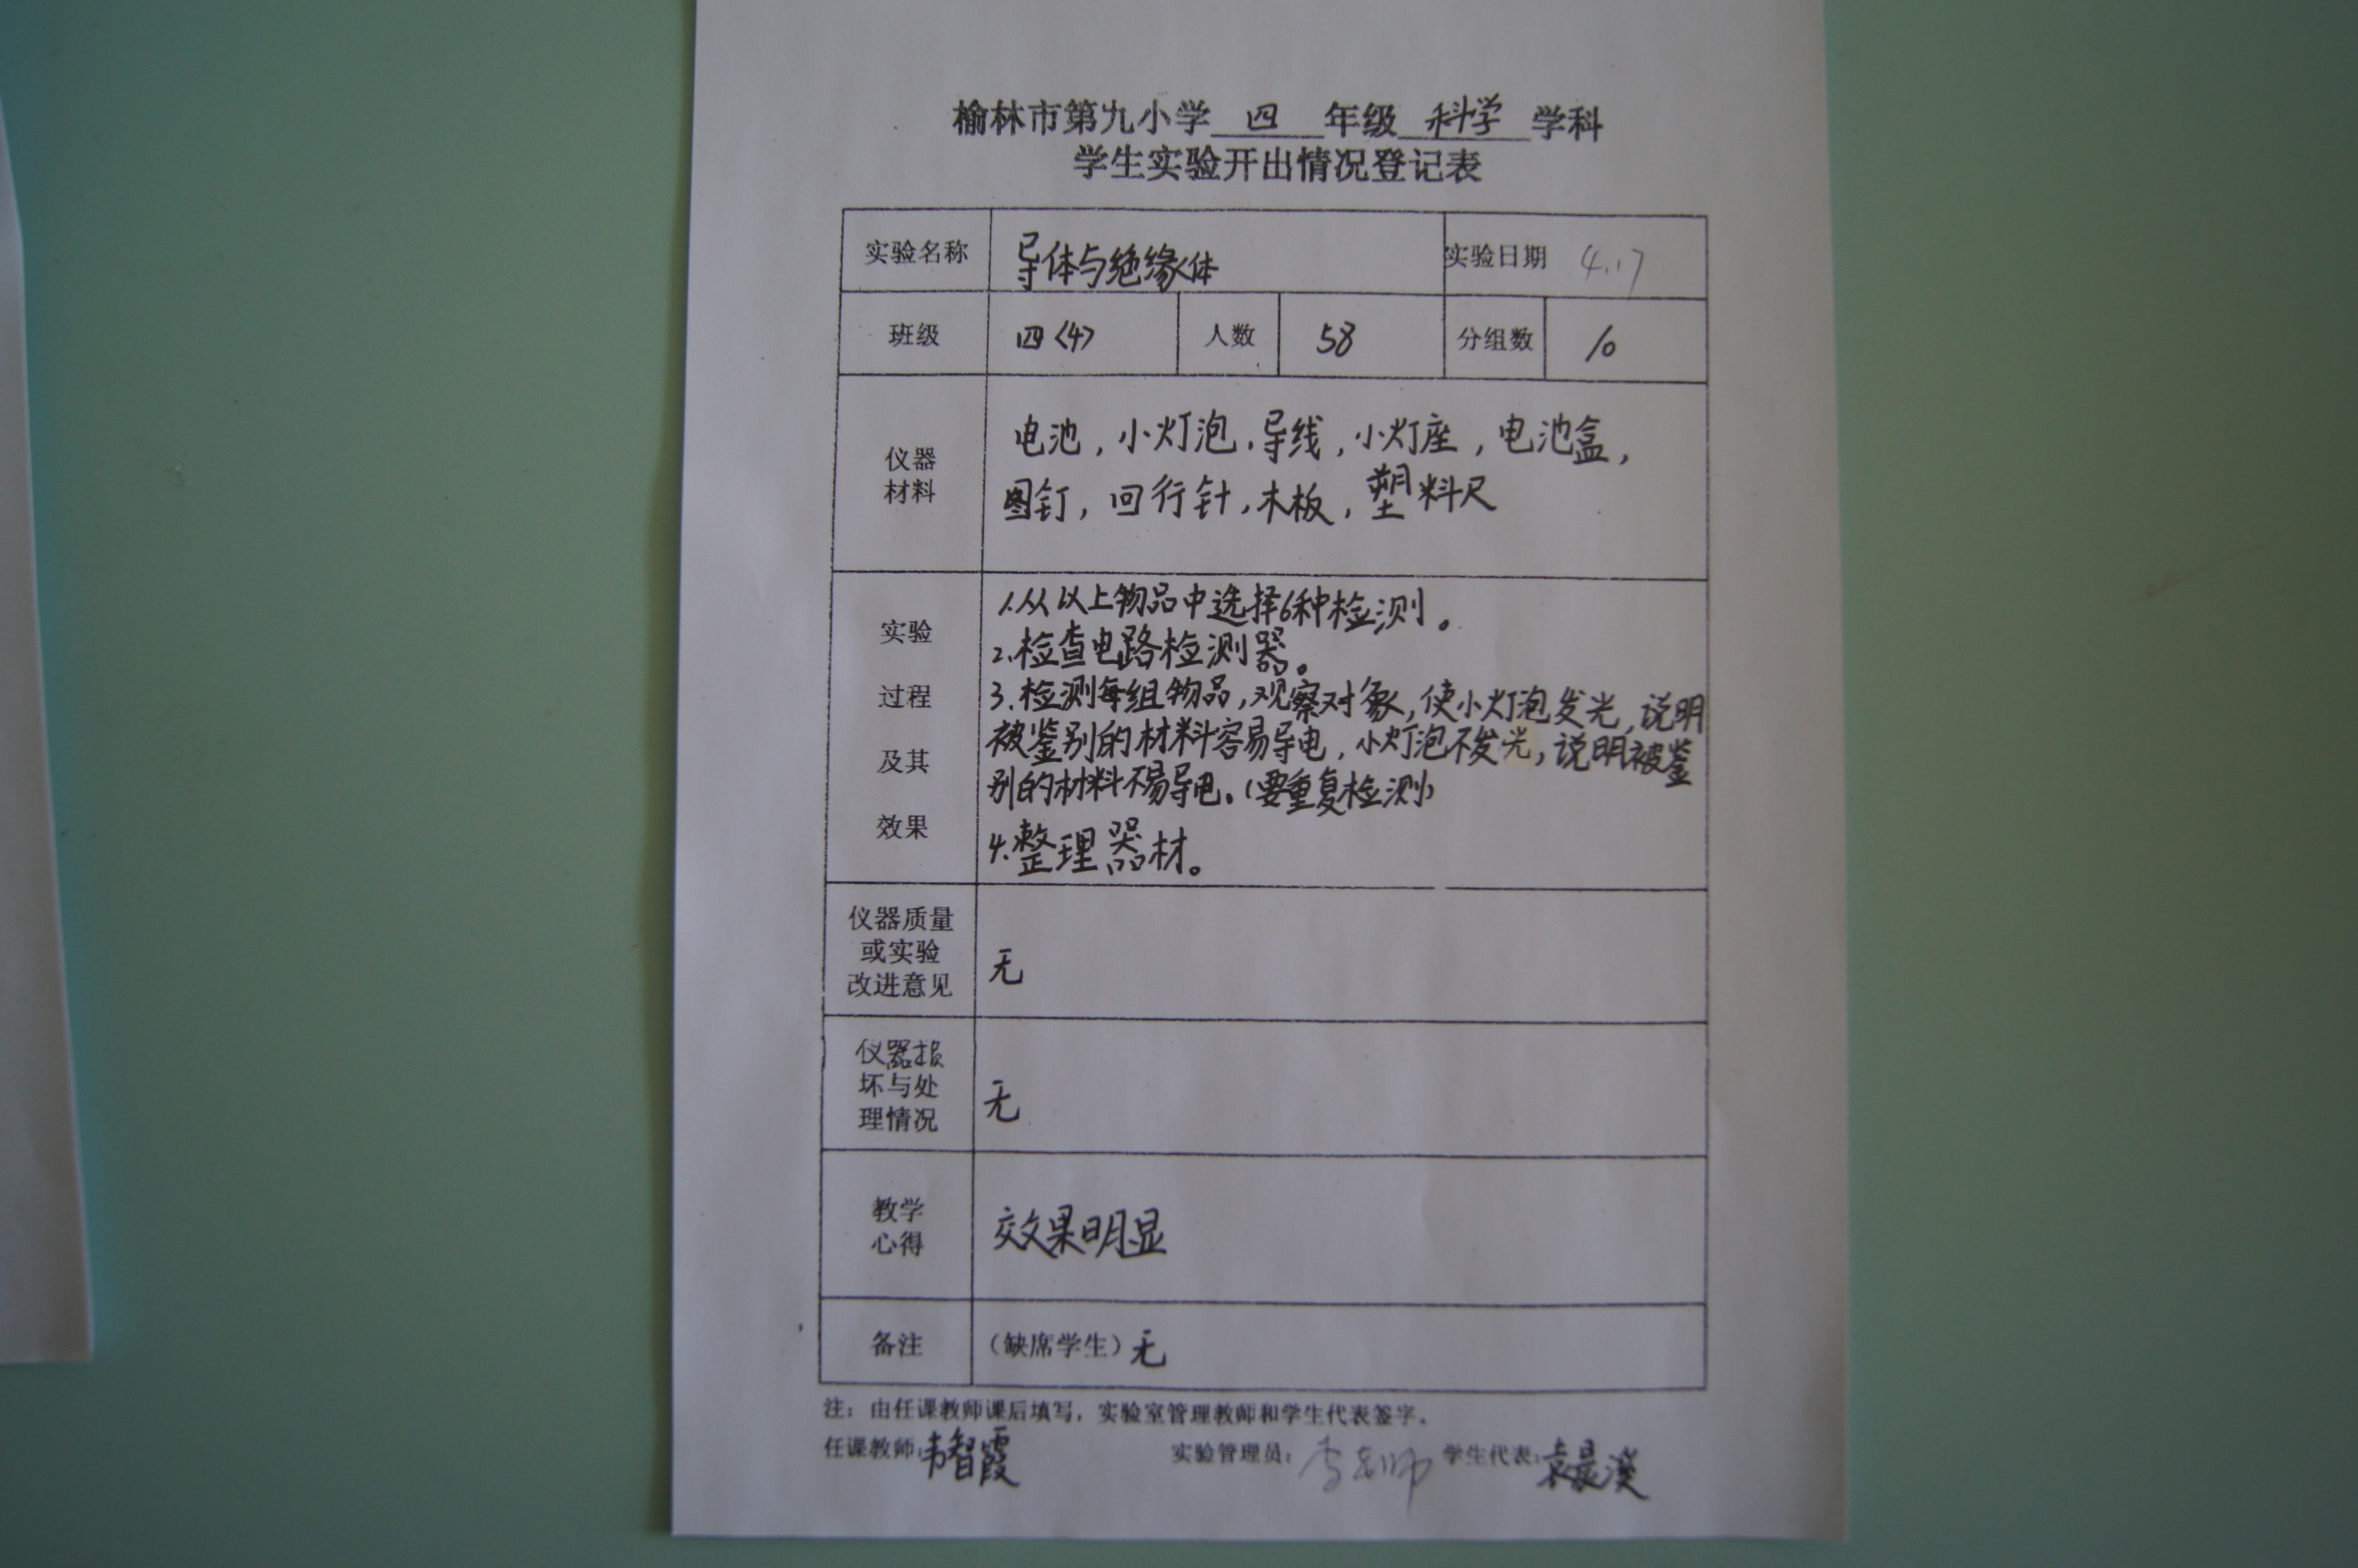 榆林市第九小学 四 年级 科学 学科
学生实验开出情况登记表
实验名称 导体与绝缘体 实验日期 4.17
班级 四(4) 人数 58 分组数 10
仪器材料
电池,小灯泡,导线,小灯座,电池盒,
图钉,回行针,木板,塑料尺
实验过程及其效果
1.从以上物品中选择6种检测。
2.检查电路检测器。
3.检测每组物品,观察对象,使小灯泡发光,说明
被鉴别的材料容易导电,小灯泡不发光,说明被鉴
别的材料不易导电。(要重复检测)
4.整理器材。
仪器质量
或实验
改进意见
无
仪器损
坏与处
理情况
无
教学
心得
效果明显
备注 (缺席学生)无
注:由任课教师课后填写,实验室管理教师和学生代表签字。
任课教师:韦智霞 实验管理员:李老师 学生代表:袁